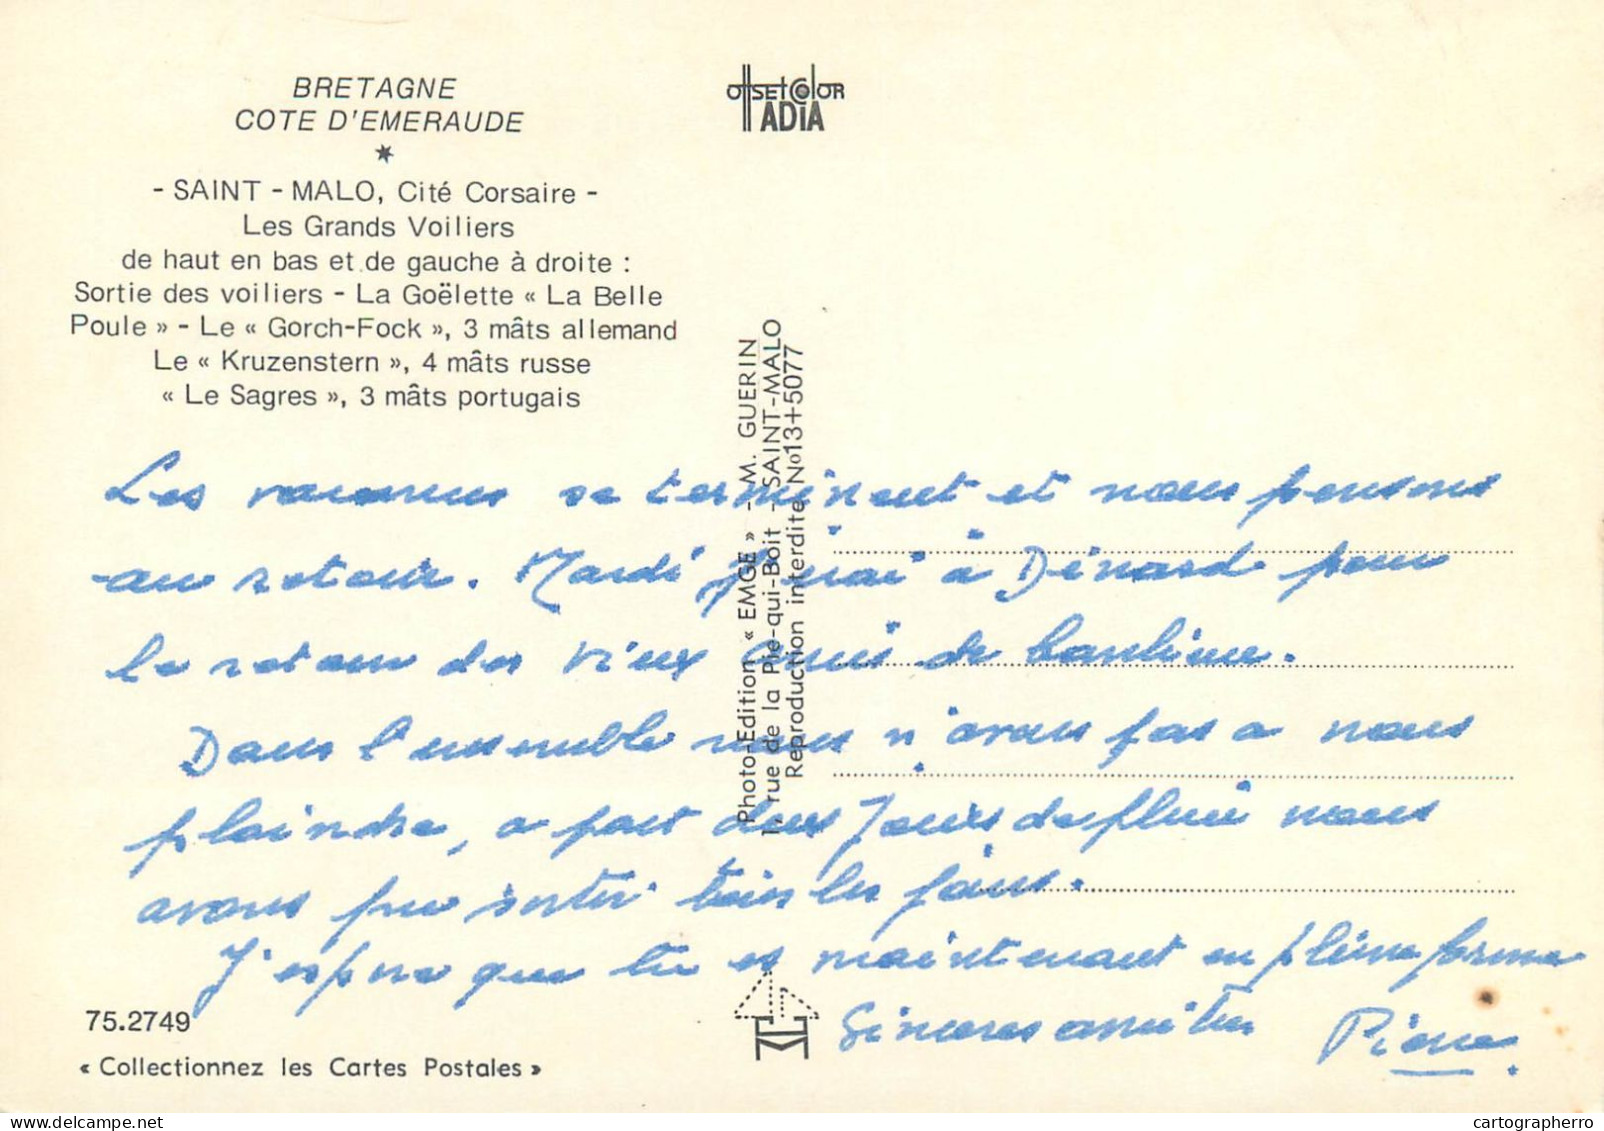 BRETAGNE
COTE D'EMERAUDE
- SAINT - MALO, Cité Corsaire -
Les Grands Voiliers
de haut en bas et de gauche à droite :
Sortie des voiliers - La Goëlette « La Belle
Poule » - Le « Gorch-Fock », 3 mâts allemand
Le « Kruzenstern », 4 mâts russe
« Le Sagres », 3 mâts portugais
offsetcolor
ADIA
Photo-Edition « EMGE » - M. GUERIN
1, rue de la Pie-qui-Boit - SAINT-MALO
Reproduction interdite No 13+5077
Les vacances se terminent et nous pensons
au retour. Mardi j'irai à Dinard pour
le retour des vieux amis de banlieue.
Dans l'ensemble nous n'avons pas a nous
plaindre, a part deux jours de pluie nous
avons pu sortir tous les jours.
J'espere que tu es maintenant en pleine forme
Sinceres amitiés Pierre.
75.2749
« Collectionnez les Cartes Postales »
cartographerro